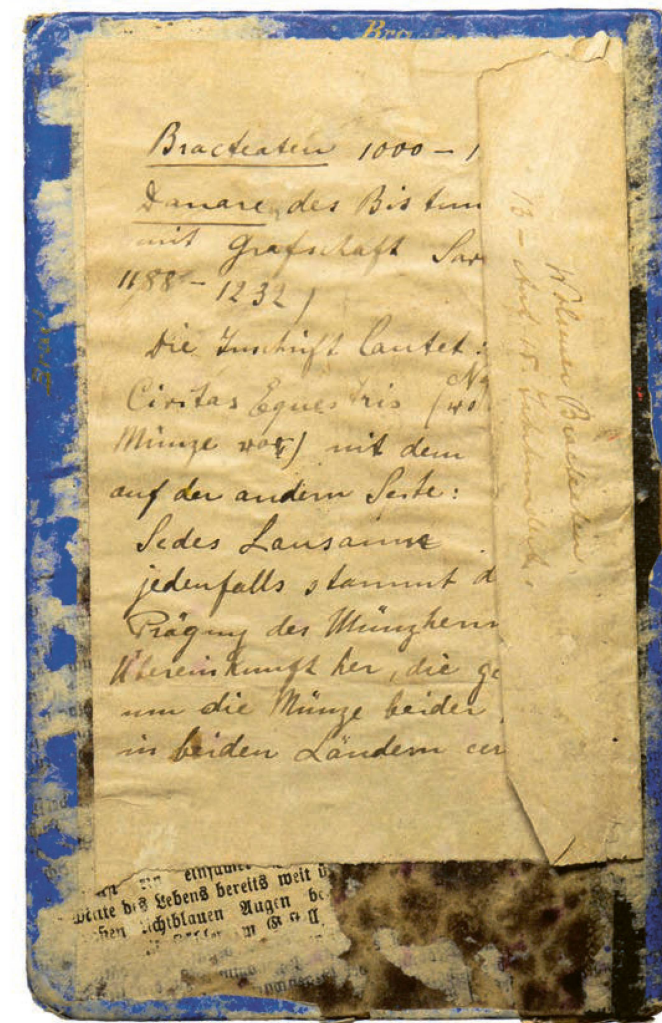 Bracteaten 1000 – 1
Danare des Bistum
mit Grafschaft Sav
1188 – 1232)
Die Inschrift lautet:
Civitas Equestris (Ny
wo
Münze war) mit dem
auf der andern Seite:
Sedes Lausanne
jedenfalls stammt d
Prägung des Münzherrn
Übereinkunft her, die ge
um die Münze beider
in beiden Ländern cur
Bracteaten
13 – Anf. 15. Jahrhundert.
Bract
des Lebens bereits weit
lichtblauen Augen be